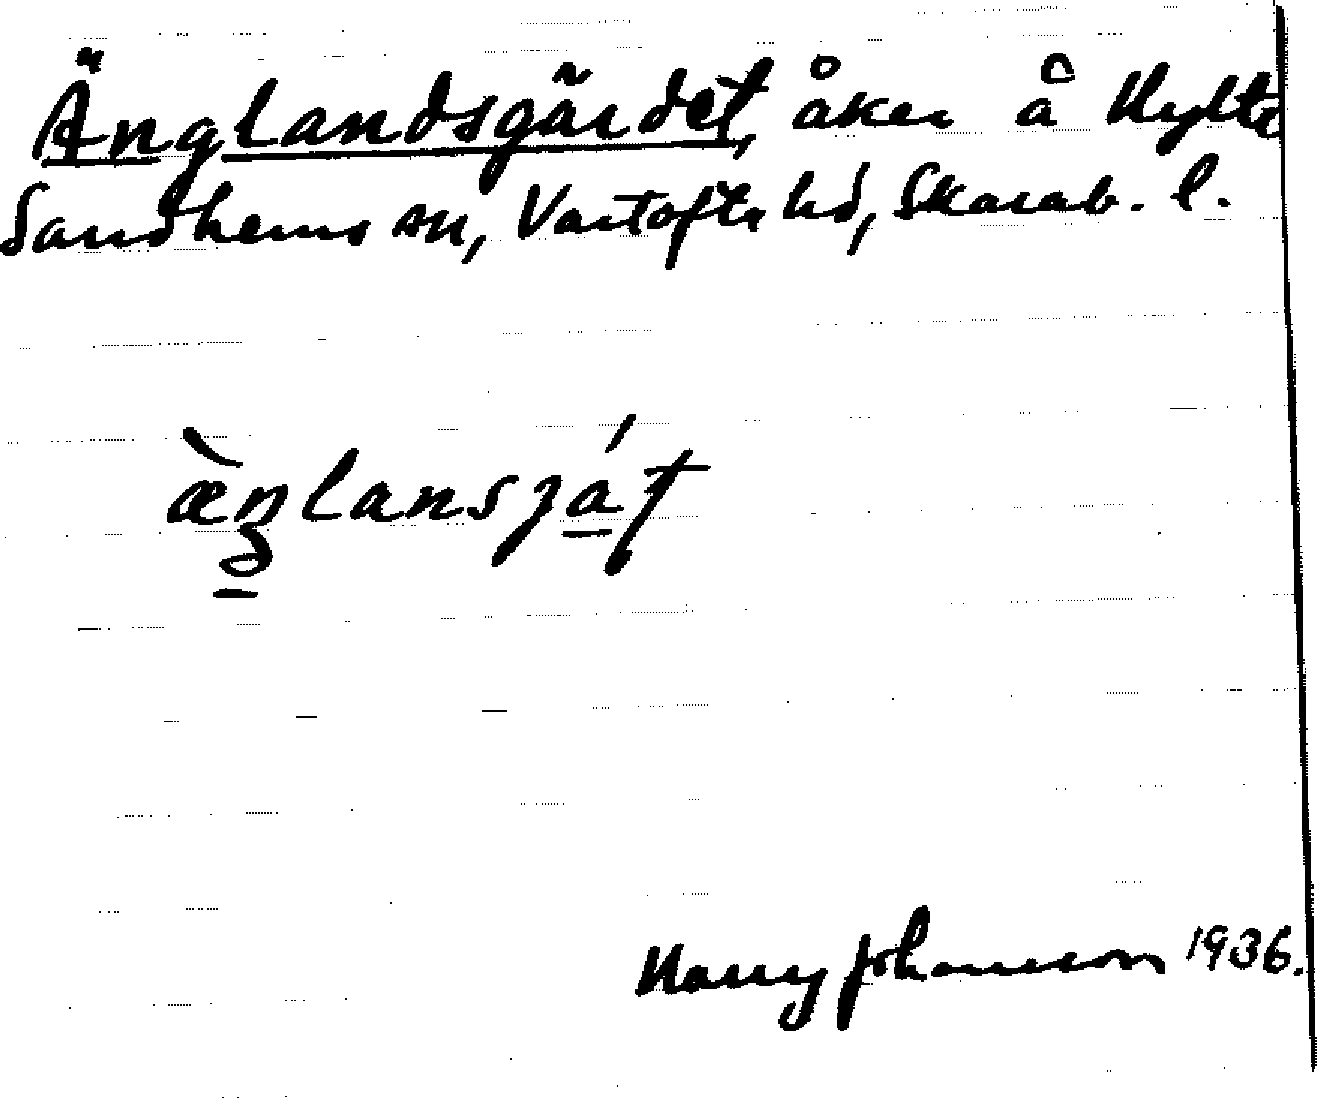 Änglandsgärdet, åker å Hylte
Sandhems sn, Vartofta hd, Skarab. l.
æ̀ŋlansjá̱t
Harry Johansson 1936.